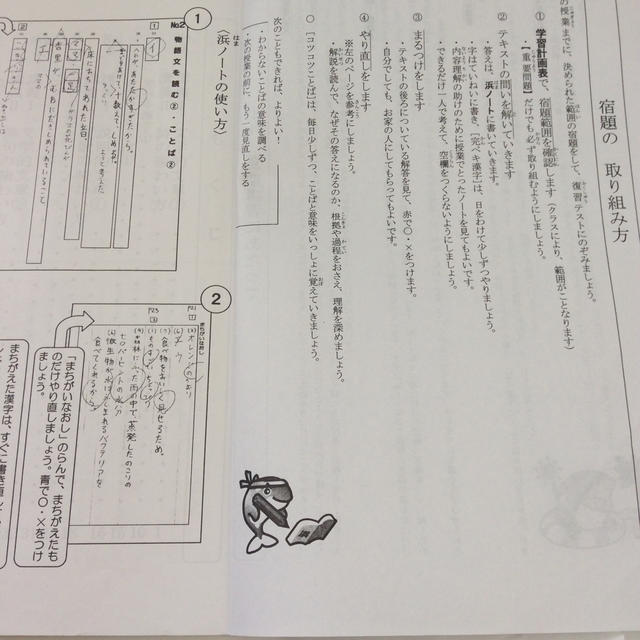 宿題の 取り組み方
の授業までに、決められた範囲の宿題をして、復習テストにのぞみましょう。
① 学習計画表で、宿題範囲を確認します(クラスにより、範囲がことなります)
【重要問題】だけでも必ず取り組むようにしましょう。
② テキストの問いを解いていきます
・答えは、浜ノートに書いていきます。
・字はていねいに書き、[完ペキ漢字]は、日をわけて少しずつやりましょう。
・内容理解の助けのために授業でとったノートを見てもよいです。
・できるだけ一人で考えて、空欄をつくらないようにしましょう。
③ まるつけをします
・テキストの後ろについている解答を見て、赤で〇・×をつけます。
・自分でしても、お家の人にしてもらってもよいです。
④ やり直しをします
※左のページを参考にしましょう。
・解説を読んで、なぜその答えになるのか、根拠や過程をおさえ、理解を深めましょう。
〇 [コツコツことば]は、毎日少しずつ、ことばと意味をいっしょに覚えていきましょう。
次のこともできれば、よりよい!
・わからないことばの意味を調べる
・次の授業の前に、もう一度見直しをする
〈浜ノートの使い方〉
1
No.2 物語文を読む②・ことば②
1
イ
エ
2
2
まちがいなおし
P21
1
オレンジ
ウ
食べ物をおいしく見せるため。
P23
3
森林にふった雨の中で、蒸発したのこりの
七〇パーセントの水分
「まちがいなおし」のらんで、まちがえたも
のだけやり直しましょう。青で〇・×をつけ
ましょう。
まちがえた漢字は、すぐに書き直し